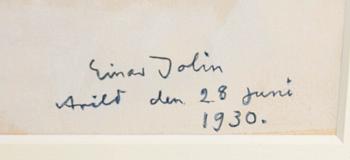 Einar Jolin
Arild den 28 juni
1930.